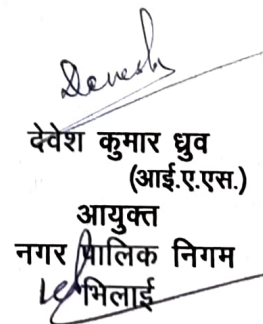 Devesh
देवेश कुमार ध्रुव
(आई.ए.एस.)
आयुक्त
नगर पालिक निगम
भिलाई